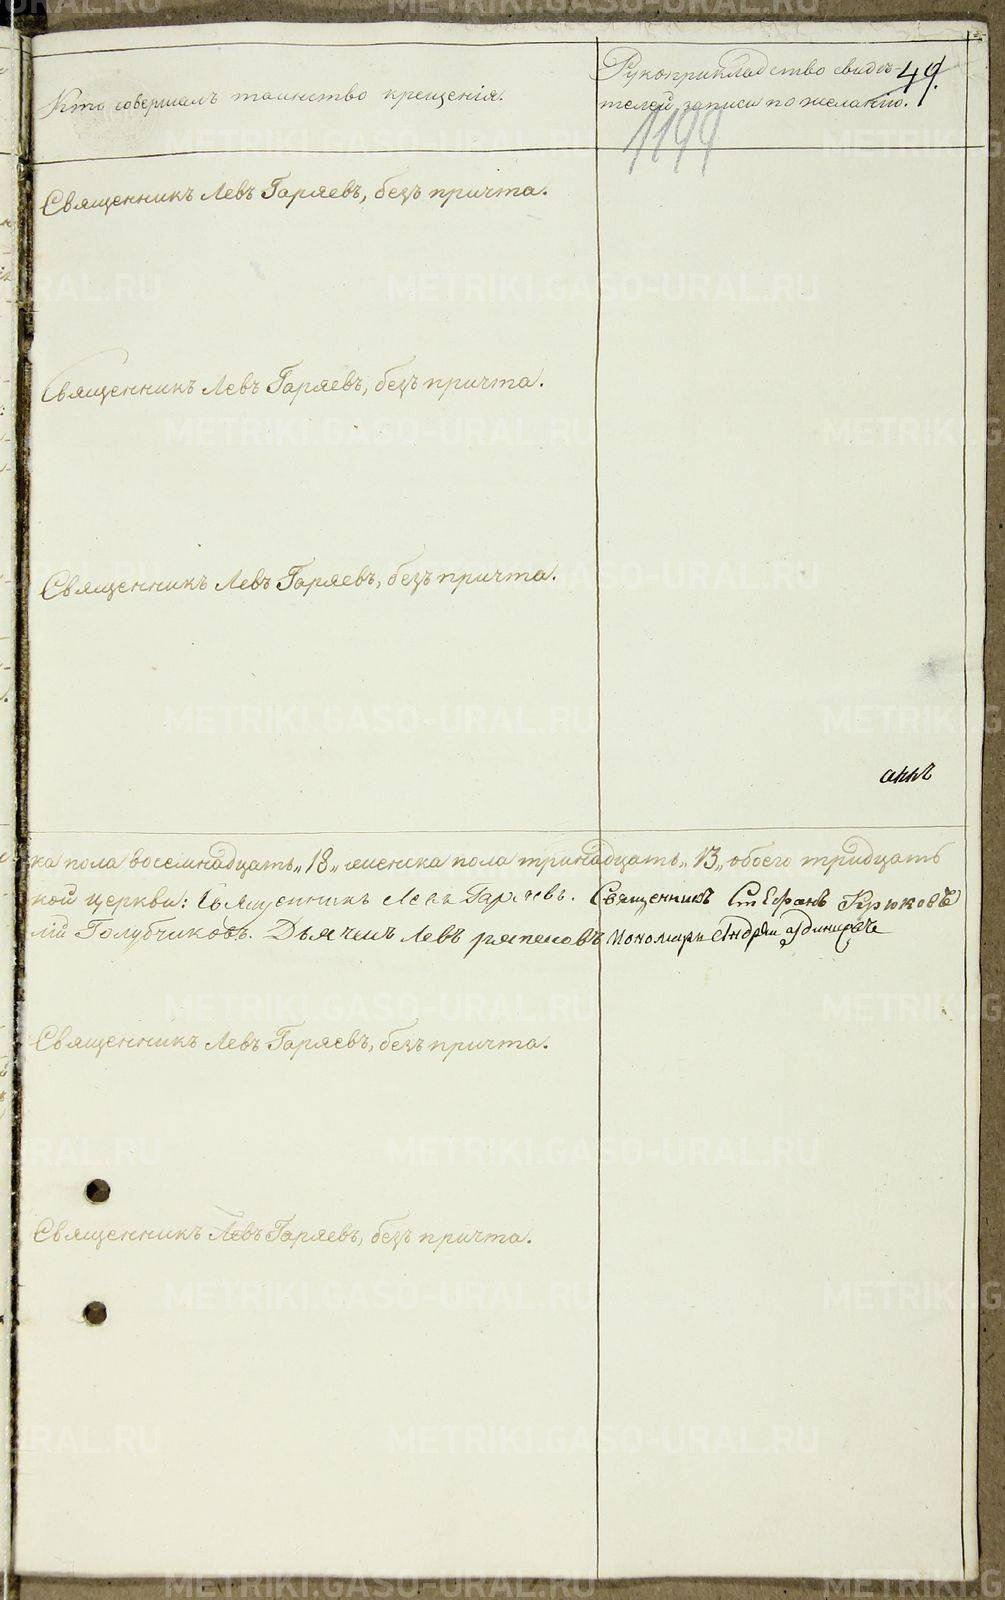 Кто совершалъ таинство крещенія.
Рукоприкладство свидѣ-
телей записи по желанію.
49.
1199
Священникъ Левъ Гаряевъ, безъ причта.
Священникъ Левъ Гаряевъ, безъ причта.
Священникъ Левъ Гаряевъ, безъ причта.
ка пола восемнадцать „18„ женска пола тринадцать „13„ обоего тридцать
ной церкви: Священникъ Левъ Гаряевъ. Священникъ Стефанъ Крюковъ
лій Голубчиковъ. Дьячекъ Левъ Пономарь Андрей
Священникъ Левъ Гаряевъ, безъ причта.
Священникъ Левъ Гаряевъ, безъ причта.
METRIKI.GASO-URAL.RU